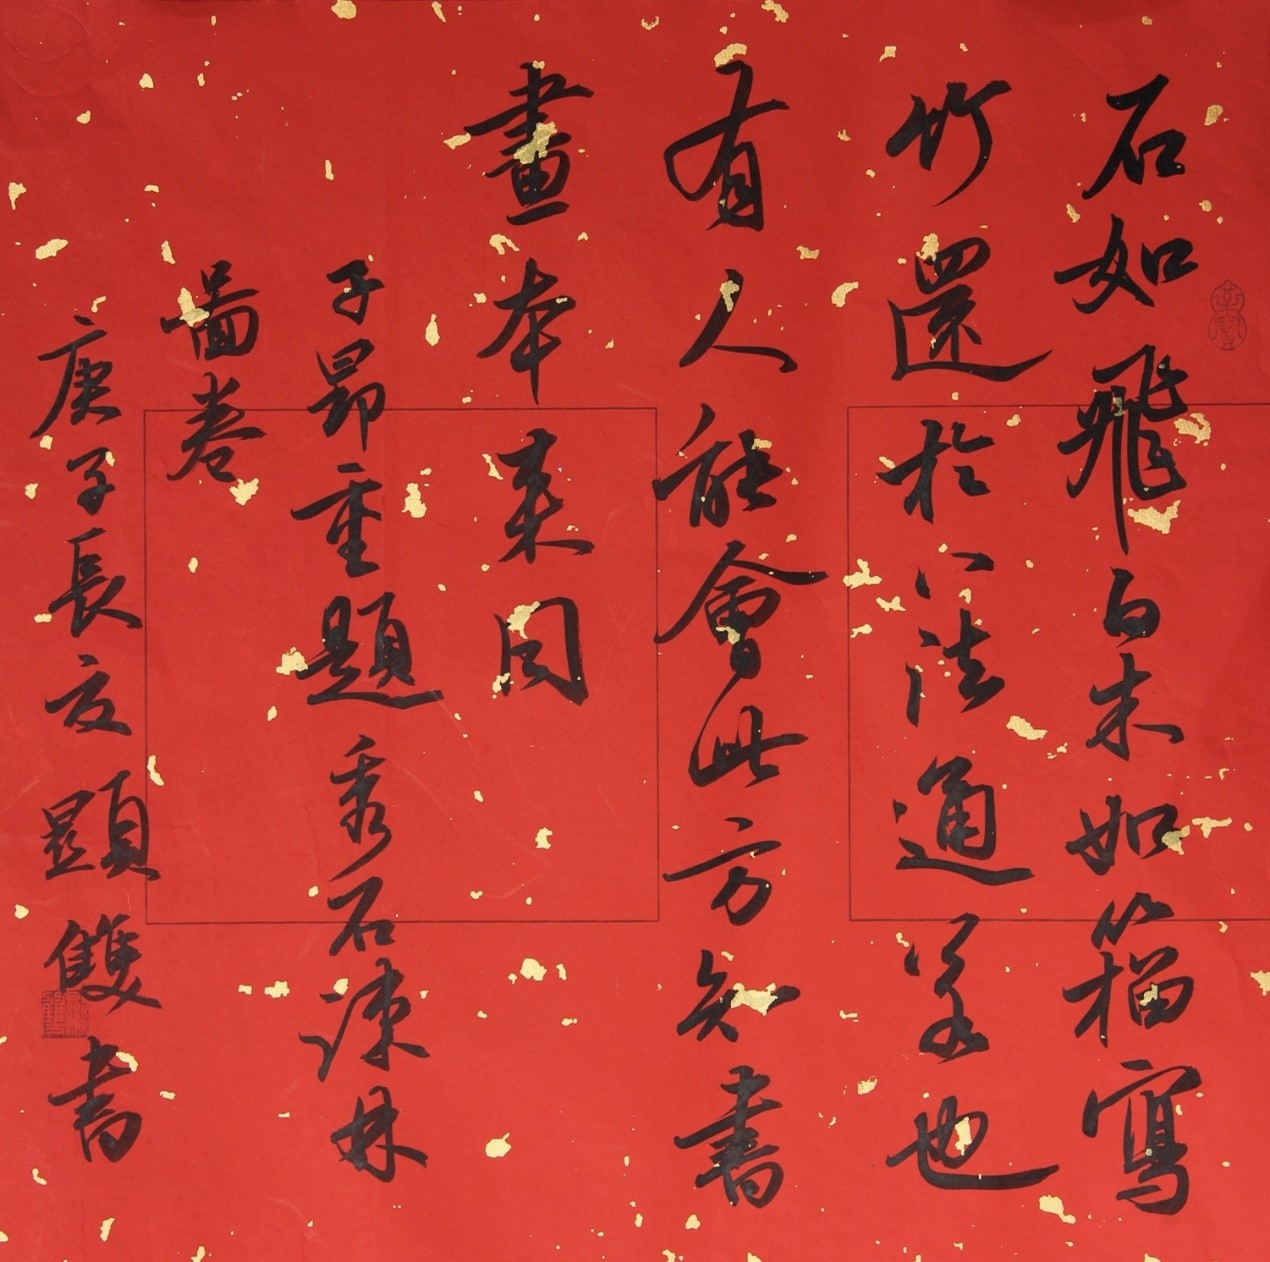 石如飛白木如籀寫
竹還於八法通若也
有人能會此方知書
畫本来同
子昂重題秀石疎林
啚卷
庚子長夏顯雙書